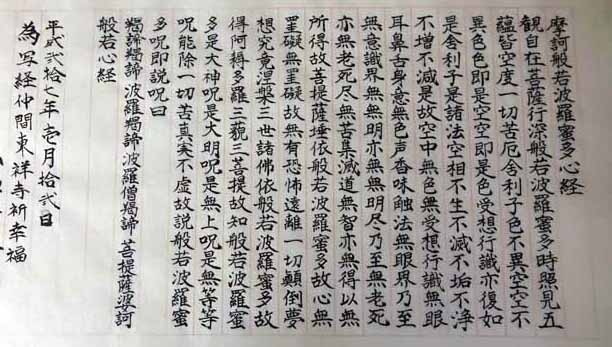 摩訶般若波羅蜜多心経
観自在菩薩行深般若波羅蜜多時照見五
蘊皆空度一切苦厄舎利子色不異空空不
異色色即是空空即是色受想行識亦復如
是舎利子是諸法空相不生不滅不垢不浄
不増不減是故空中無色無受想行識無眼
耳鼻舌身意無色声香味触法無眼界乃至
無意識界無無明亦無無明尽乃至無老死
亦無老死尽無苦集滅道無智亦無得以無
所得故菩提薩埵依般若波羅蜜多故心無
罣礙無罣礙故無有恐怖遠離一切顛倒夢
想究竟涅槃三世諸佛依般若波羅蜜多故
得阿耨多羅三藐三菩提故知般若波羅蜜
多是大神呪是大明呪是無上呪是無等等
呪能除一切苦真実不虚故説般若波羅蜜
多呪即説呪曰
羯諦羯諦波羅羯諦波羅僧羯諦 菩提薩婆訶
般若心経
平成弐拾七年壱月拾弐日
為写経仲間東祥寺祈幸福